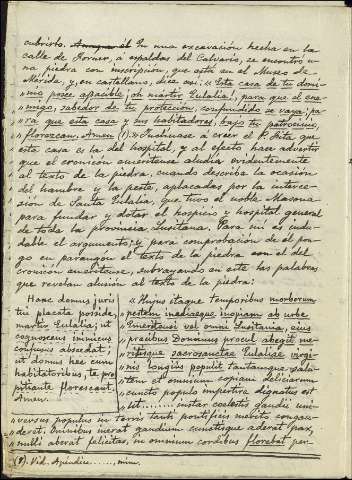 cubierto. En una excavación hecha en la
calle de Forner, á espaldas del Calvario, se encontró u-
na piedra con inscripción, que está en el Museo de
Mérida, y, en castellano, dice así: "Esta casa de tu domi-
"nio posee apacible, oh mártir Eulalia, para que el ene-
"migo, sabedor de tu protección, confundido se vaya; pa-
"ra que esta casa y sus habitadores, bajo tu patrocinio,
"florezcan. Amen (1)." Inclínase á creer el P. Fita que
esta casa es la del hospital, y al efecto hace advertir
que el cronicón emeritense aludía evidentemente
al texto de la piedra, cuando describía la ocasión
del hambre y la peste, aplacadas por la interce-
sión de Santa Eulalia, que tuvo el noble Masona
para fundar y dotar el hospicio y hospital general
de toda la provincia Lusitana. Para mí es indu-
dable el argumento; y para comprobación de él pon-
go en parangón el texto de la piedra con el del
cronicón emeritense, subrayando en este las palabras
que revelan alusión al texto de la piedra:
Hanc domus juris
tui placata posside,
martir Eulalia; ut
cognoscens inimicus
confusus abscedat;
ut domus hec cum
habitatoribus, te pro-
pitiante florescant.
Amen.
"Hujus itaque temporibus morborum
pestem inediaeque inopiam ab urbe
Emeritensi vel omni Lusitania, ejus
precibus Dominus procul abegit me-
ritisque sacrosanctae Eulaliae virgi-
nis longius populit Tantamque salu-
tem et omnium copiam deliciarum
cuncto populo impertire dignatus est
ut...... instar coelestis gaudii uni-
versus populus in terris tanti pontificis meritis congau-
deret. Omnibus inerat gaudium cunctisque aderat pax,
nulli aberat felicitas, in omnium cordibus florebat per-
(1). Vid. Apéndice......, núm.